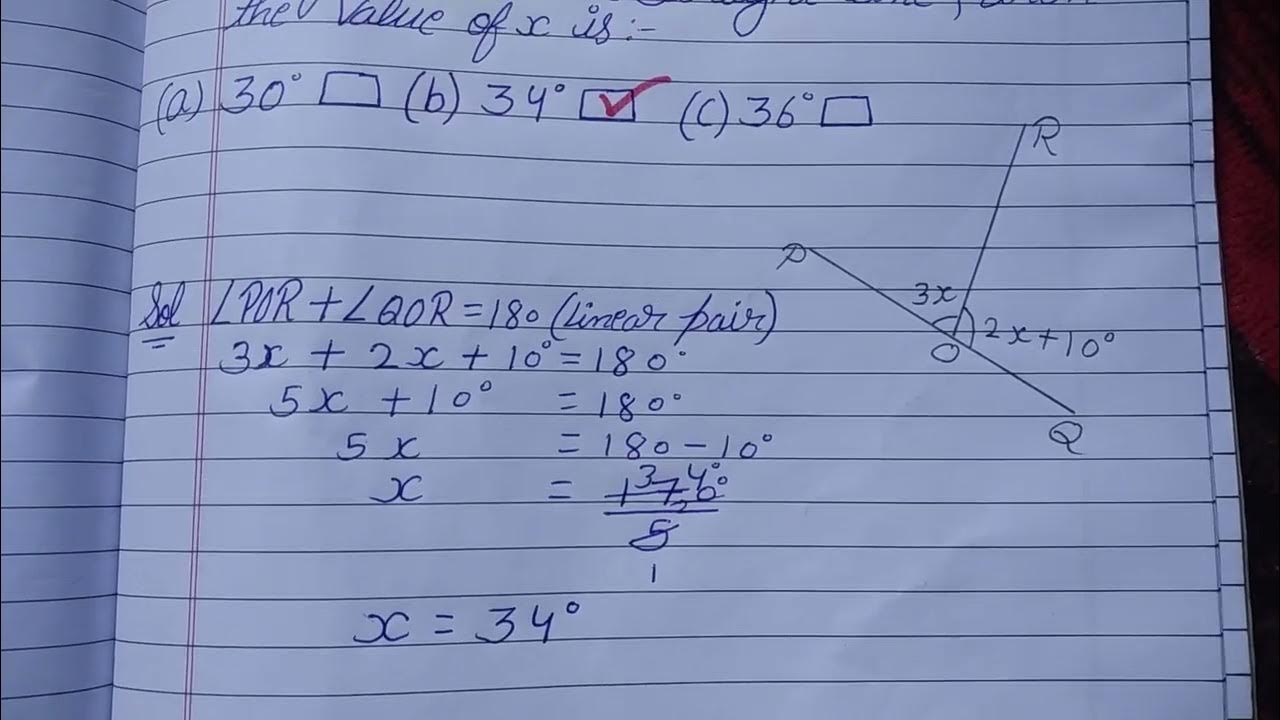 the Value of x is :-
(a) 30° (b) 34° ✓ (c) 36°
R
P
3x
2x+10°
O
Q
Sol ∠POR + ∠QOR = 180 (Linear pair)
3x + 2x + 10° = 180°
5x + 10° = 180°
5x = 180 - 10°
x = 170°/5
34°
1
x = 34°